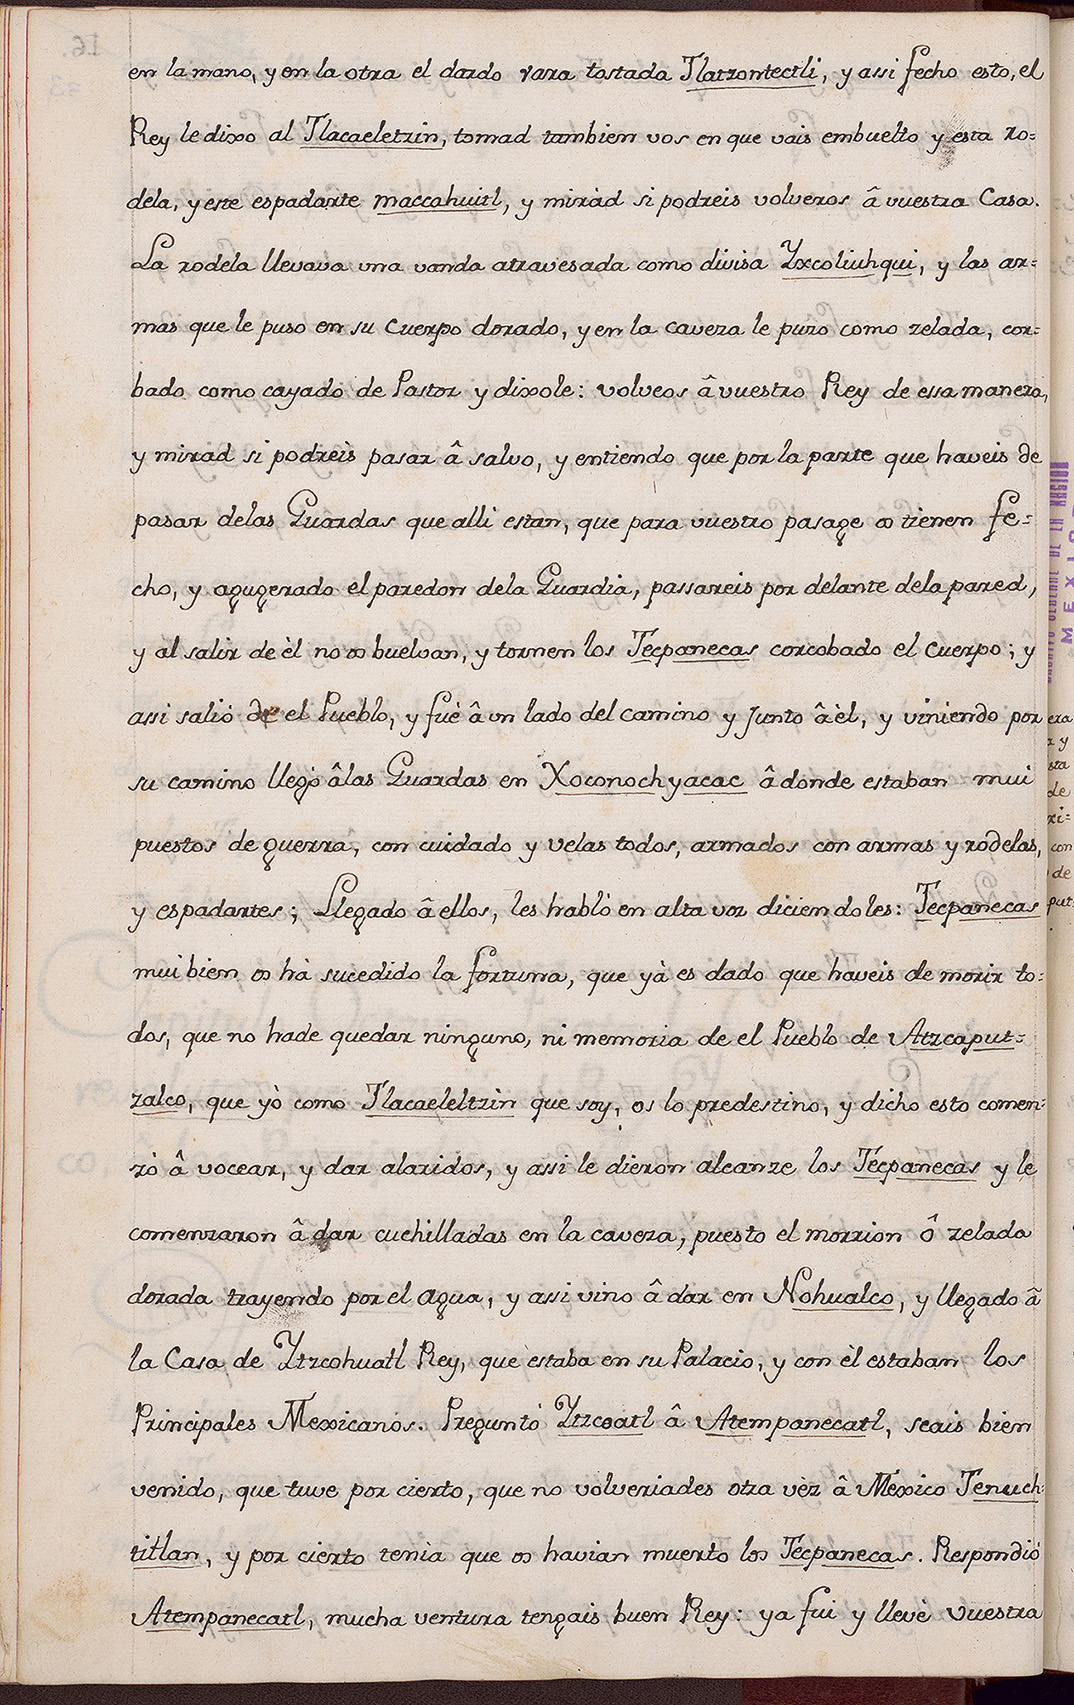 en la mano, y en la otra el dardo vara tostada Tlatzontectli, y assi fecho esto, el
Rey le dixo al Tlacaeletzin, tomad tambien vos en que vais embuelto y esta ro=
dela, y este espadarte maccahuitl, y mirad si podreis volveros â vuestra Casa.
La rodela llevava una vanda atravesada como divisa Yxcoliuhqui, y las ar=
mas que le puso en su cuerpo dorado, y en la caveza le puzo como zelada, cor=
bado como cayado de Pastor y dixole: volveos â vuestro Rey de essa manera,
y mirad si podreis pasar â salvo, y entiendo que por la parte que haveis de
pasar delas Guardas que alli estan, que para vuestro pasage os tienen fe=
cho, y agugerado el paredon dela Guardia, passareis por delante dela pared,
y al salir de èl no os buelvan, y tornen los Tecpanecas corcobado el cuerpo; y
assi salió de el Pueblo, y fuè â un lado del camino y Junto â èl, y viniendo por
su camino llegó âlas Guardas en Xoconochyacac â donde estaban mui
puestos de guerra, con cuidado y velas todos, armados con armas y rodelas,
y espadartes; Llegado â ellos, les habló en alta voz diciendoles: Tecpanecas
mui bien os hà sucedido la fortuna, que yà es dado que haveis de morir to=
dos, que no hade quedar ninguno, ni memoria de el Pueblo de Atzcaput=
zalco, que yò como Tlacaeleltzin que soy, os lo predestino, y dicho esto comen=
zò â vocear, y dar alaridos, y assi le dieron alcanze los Tecpanecas y le
comenzaron â dar cuchilladas en la caveza, puesto el morrion ô zelada
dorada trayendo por el agua, y assi vino â dar en Nohualco, y llegado â
la Casa de Ytzcohuatl Rey, que estaba en su Palacio, y con èl estaban los
Principales Mexicanos. Preguntó Ytzcoatl â Atempanecatl, seais bien
venido, que tuve por cierto, que no volveriades otra vèz â Mexico Tenuch=
titlan, y por cierto tenia que os havian muerto los Tecpanecas. Respondió
Atempanecatl, mucha ventura tengais buen Rey: ya fui y llevè vuestra